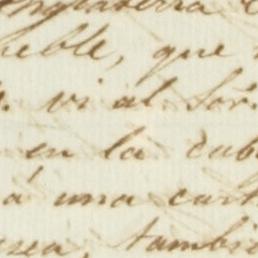 Inglaterra
eble, que
vi al Sor.
en la cub
á una cart
sea, tambie